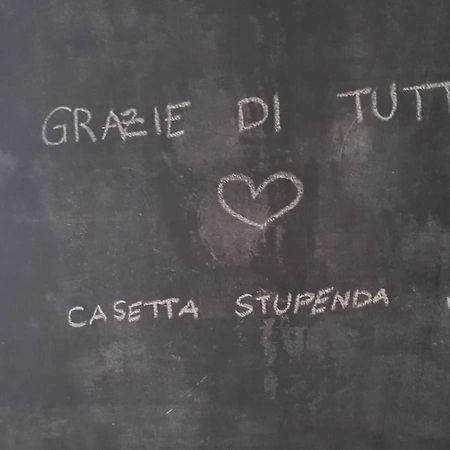 GRAZIE DI TUTT
CASETTA STUPENDA